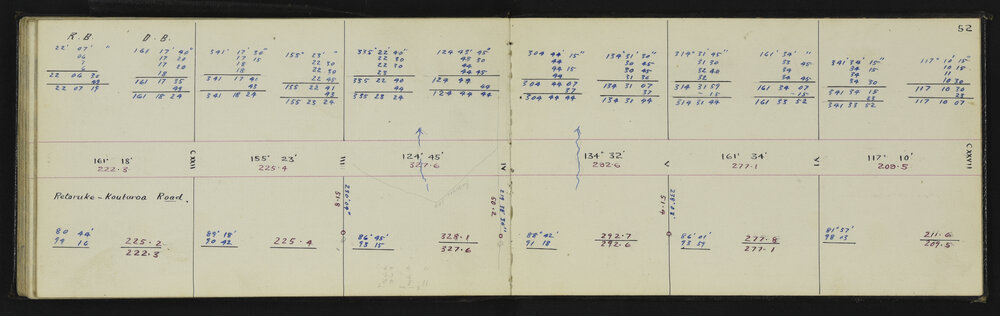 52
R. B. D. B.
22° 07' " 161 17 40"
06 17 20
17 20
48 18
22 06 30 161 17 35
22 07 19 161 18 24
341° 17' 30" 155° 23' "
17 15 22 30
18 22 30
18 22 45
341 17 41 155 22 41
43 43
341 18 24 155 23 24
335° 22' 40" 124° 45' 45"
22 30 45 30
22 30 44
23 44 45
335 22 40 124 44
44 44
335 23 24 124 44 44
304 44' 15" 134° 31' 30"
44 30 45
44 15 30 45
44 31 30
304 44 07 134 31 07
37 37
304 44 44 134 31 44
314° 31' 45" 161 34' "
31 30 33 45
32 40 34
32 34 45
314 31 59 161 34 07
15 15
314 31 44 161 33 52
341° 34' 15" 117° 10' 15"
34 15 10 15
34 11
34 30 10 30
341 34 15 117 10 30
23 23
341 33 52 117 10 07
161° 18' CXXII 155° 23' III 124° 45' IV 134° 32' V 161° 34' VI 117° 10' CXXVII
222.3 225.4 327.6 292.6 277.1 209.5
Retaruke - Kouturoa Road.
51.8
50.2
51.9
80 44' 225.2
99 16 222.3
89° 18' 225.4
90 42
86° 45' 328.1
93 15 327.6
88° 42' 292.7
91 18 292.6
86° 01' 277.8
93 59 277.1
81° 57' 211.6
98 03 209.5